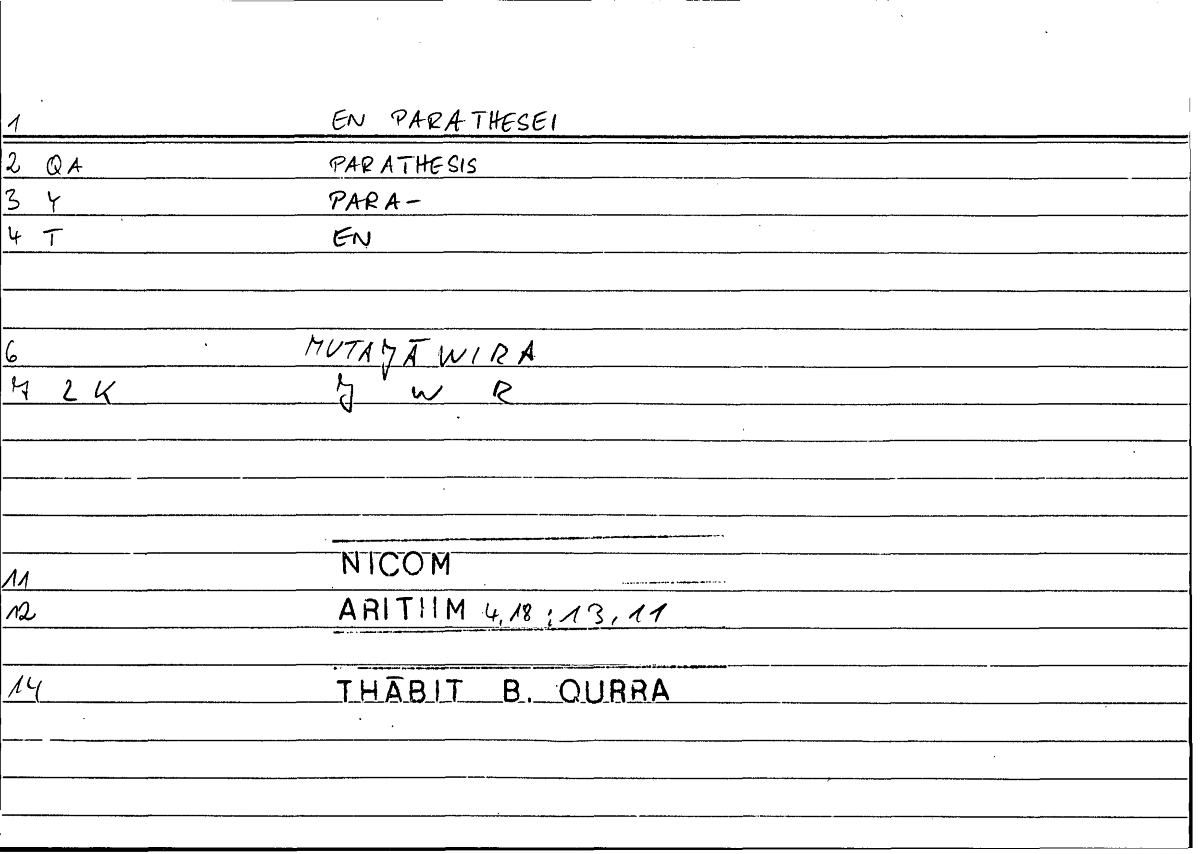 1 EN PARATHESEI
2 QA PARATHESIS
3 Y PARA-
4 T EN
6 MUTAJĀWIRA
7 2 K J W R
11 NICOM
12 ARITIIM 4,18 ; 13, 11
14 THĀBIT B. QURRA